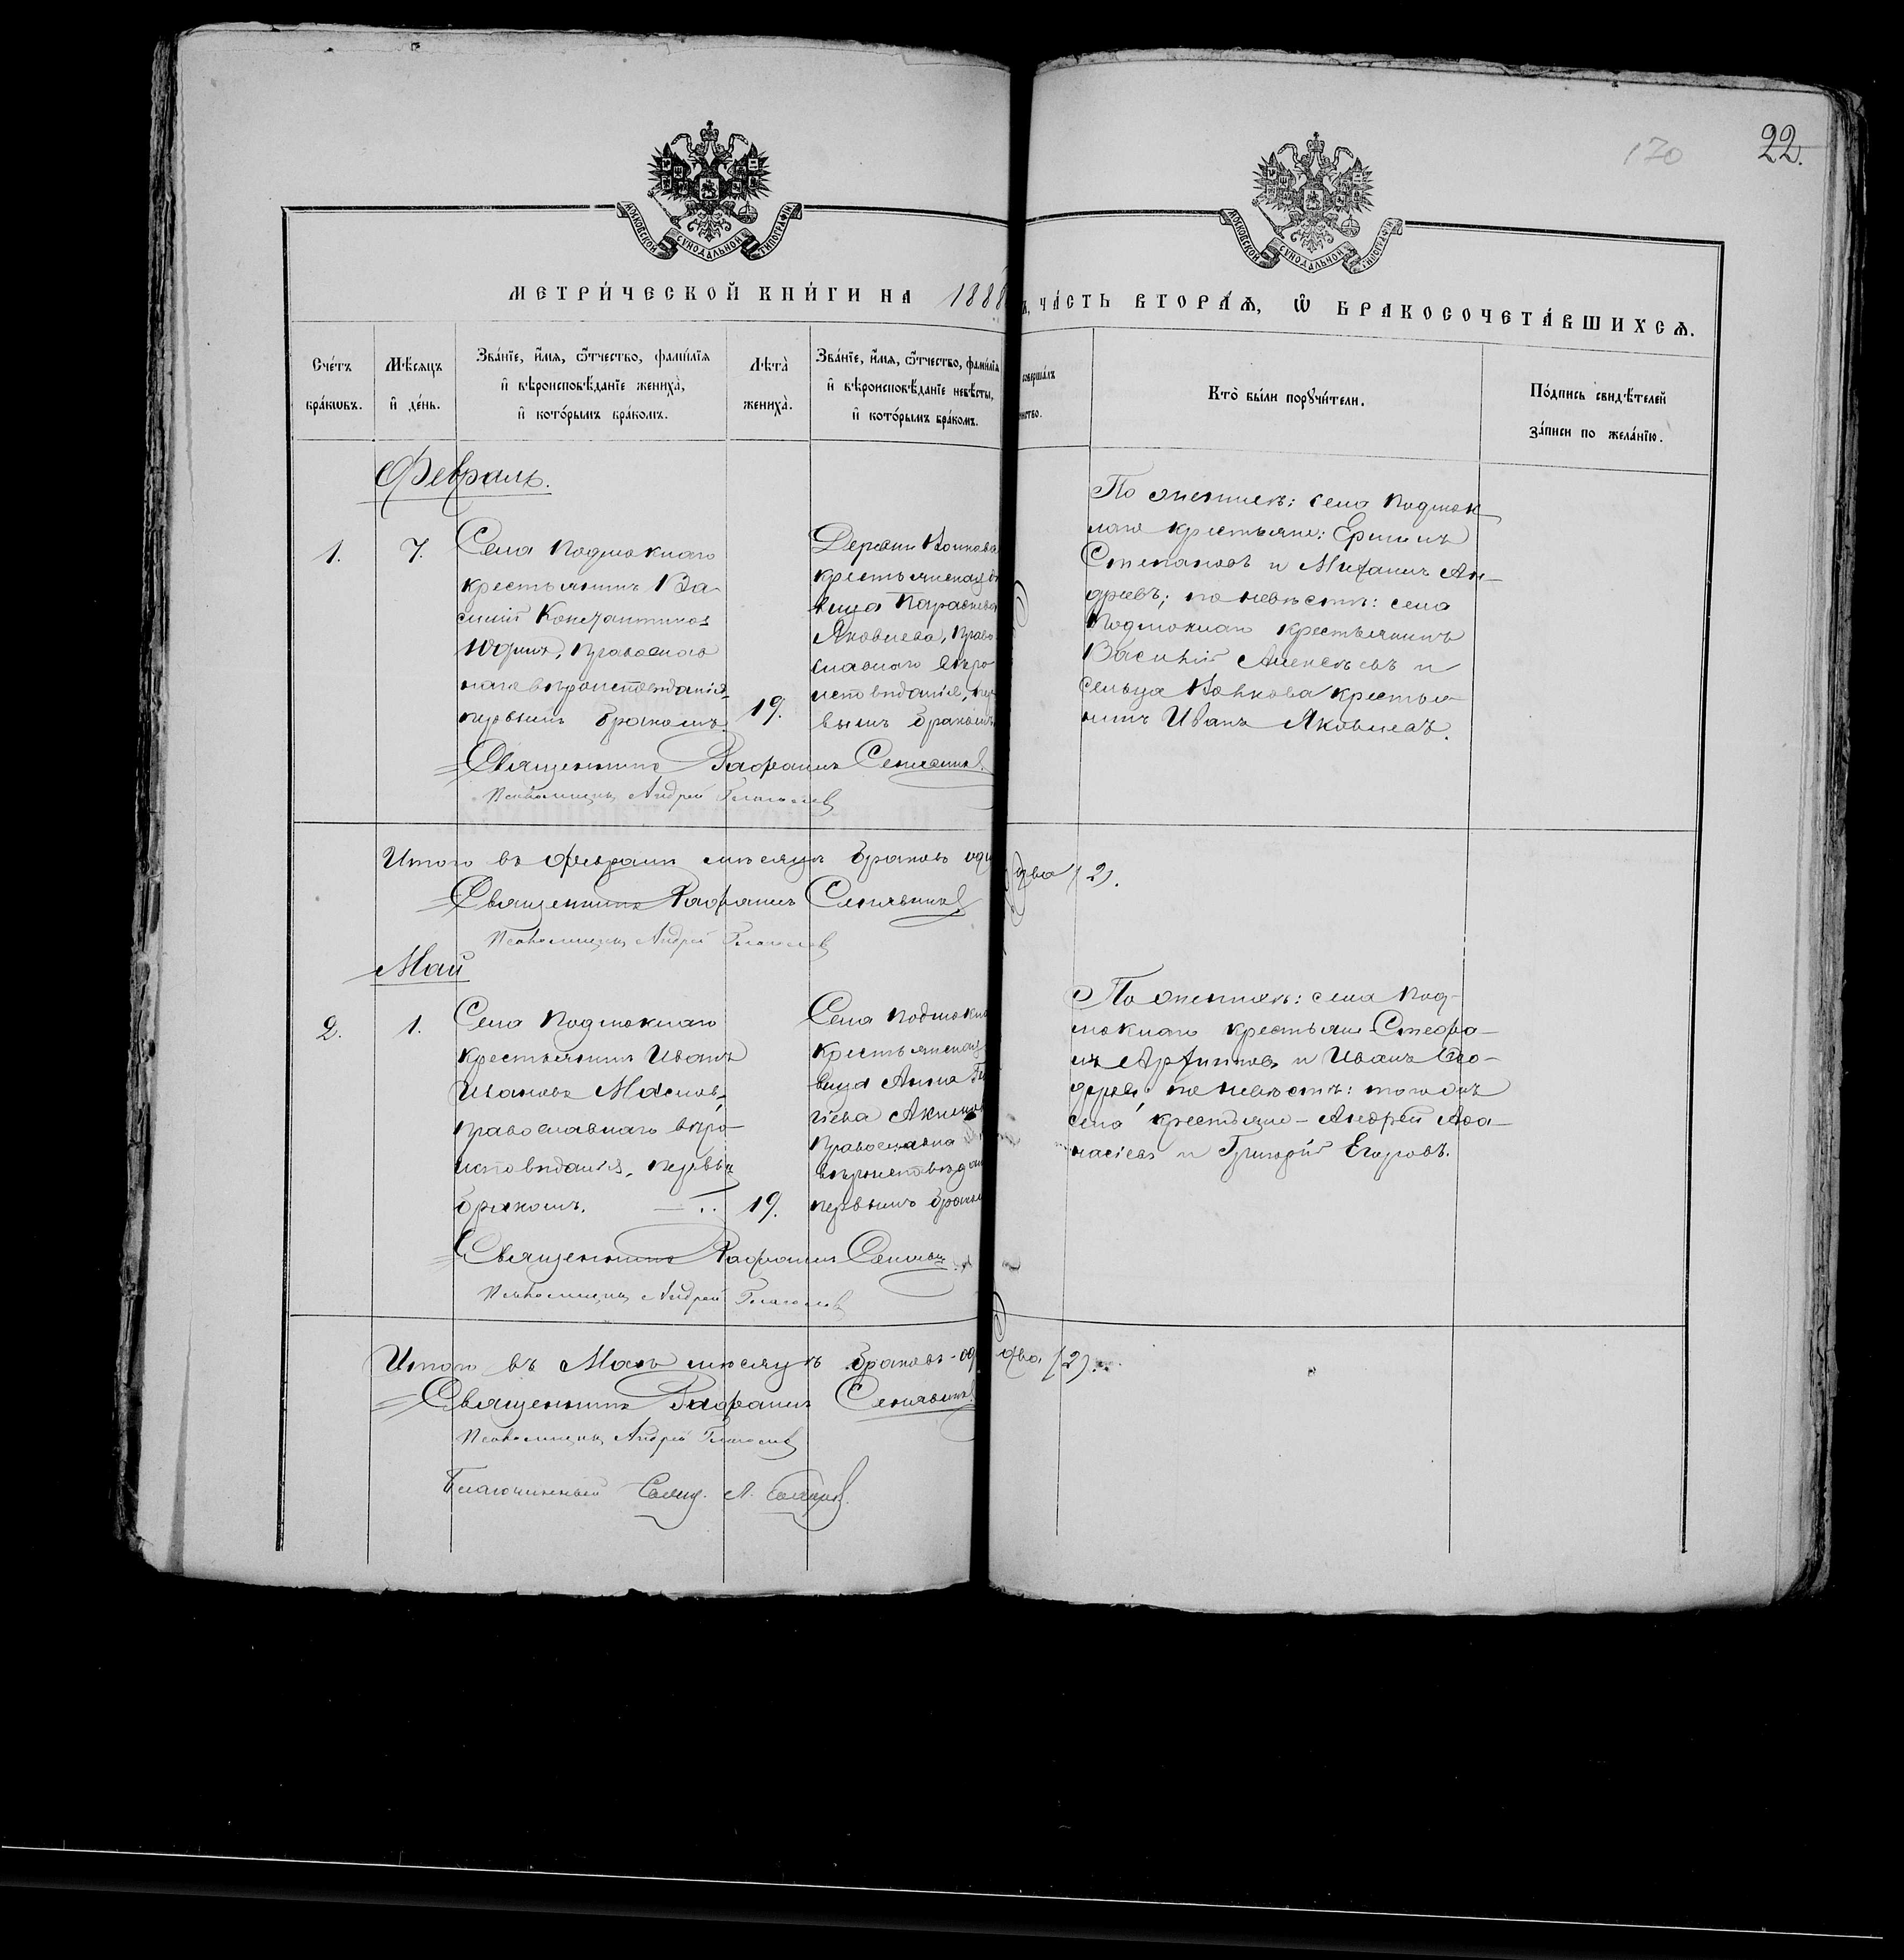 170
22.
МОСКОВСКОЙ СѴНОДАЛЬНОЙ ТИПОГРАФІИ
МОСКОВСКОЙ СѴНОДАЛЬНОЙ ТИПОГРАФІИ
МЕТРИ́ЧЕСКОЙ КНИ́ГИ НА 1888
ЧА́СТЬ ВТОРА́Ѧ, Ѿ БРАКОСОЧЕТА́ВШИХСѦ.
Сче́тъ бра́ковъ.
Мѣ́сѧцъ и де́нь.
Зва́нїе, и́мѧ, ѻ҆́тчество, фамилїѧ и вѣроисповѣ́данїе жениха̀, и кото́рымъ бра́комъ.
Лѣта̀ жениха̀.
Зва́нїе, и́мѧ, ѻ҆́тчество, фамилїѧ и вѣроисповѣ́данїе невѣ́сты, и кото́рымъ бра́комъ.
соверша́лъ
Кто̀ бы́ли порꙋчи́тели.
По́дпись свидѣ́телей за́писи по жела́нїю.
Февраль.
1.
7.
Села Подмоклаго
крестьянинъ Ва-
силій Константиновъ
православ
наго вѣроисповѣданія,
первымъ бракомъ.
19.
Деревни
крестьянская дѣ
вица Параскева
Яковлева, право-
славнаго вѣро
исповѣданія, пер
вымъ бракомъ
По женихѣ: села Подмок
лаго крестьяне: Ефимъ
Степановъ и Михаилъ Ан-
дреевъ; по невѣстѣ: села
Подмоклаго крестьянинъ
Василій Алексѣевъ и
сельца крестья-
нинъ Иванъ Яковлевъ.
Священникъ Рафаилъ
Псаломщикъ Андрей Глаголев
Итого въ февралѣ мѣсяцѣ браковъ
два (2).
Священникъ Рафаилъ
Псаломщикъ Андрей Глаголев
Май
2.
1.
Села Подмоклаго
крестьянинъ Иванъ
Ивановъ
православнаго вѣро-
исповѣданія, первым
бракомъ.
19.
Села Подмокла
крестьянская
вица Анна
православна
вѣроисповѣдан
первымъ брако
По женихѣ: села Под-
моклаго крестьяне Стефа-
нъ и Иванъ Ѳео-
по невѣстѣ: того жъ
села крестьяне – Андрей Аѳа-
насіевъ и Григорій Егоровъ.
Священникъ Рафаилъ
Псаломщикъ Андрей Глаголев
Итого въ Маѣ мѣсяцѣ браковъ – од
два (2).
Священникъ Рафаилъ
Псаломщикъ Андрей Глаголев
Благочинный